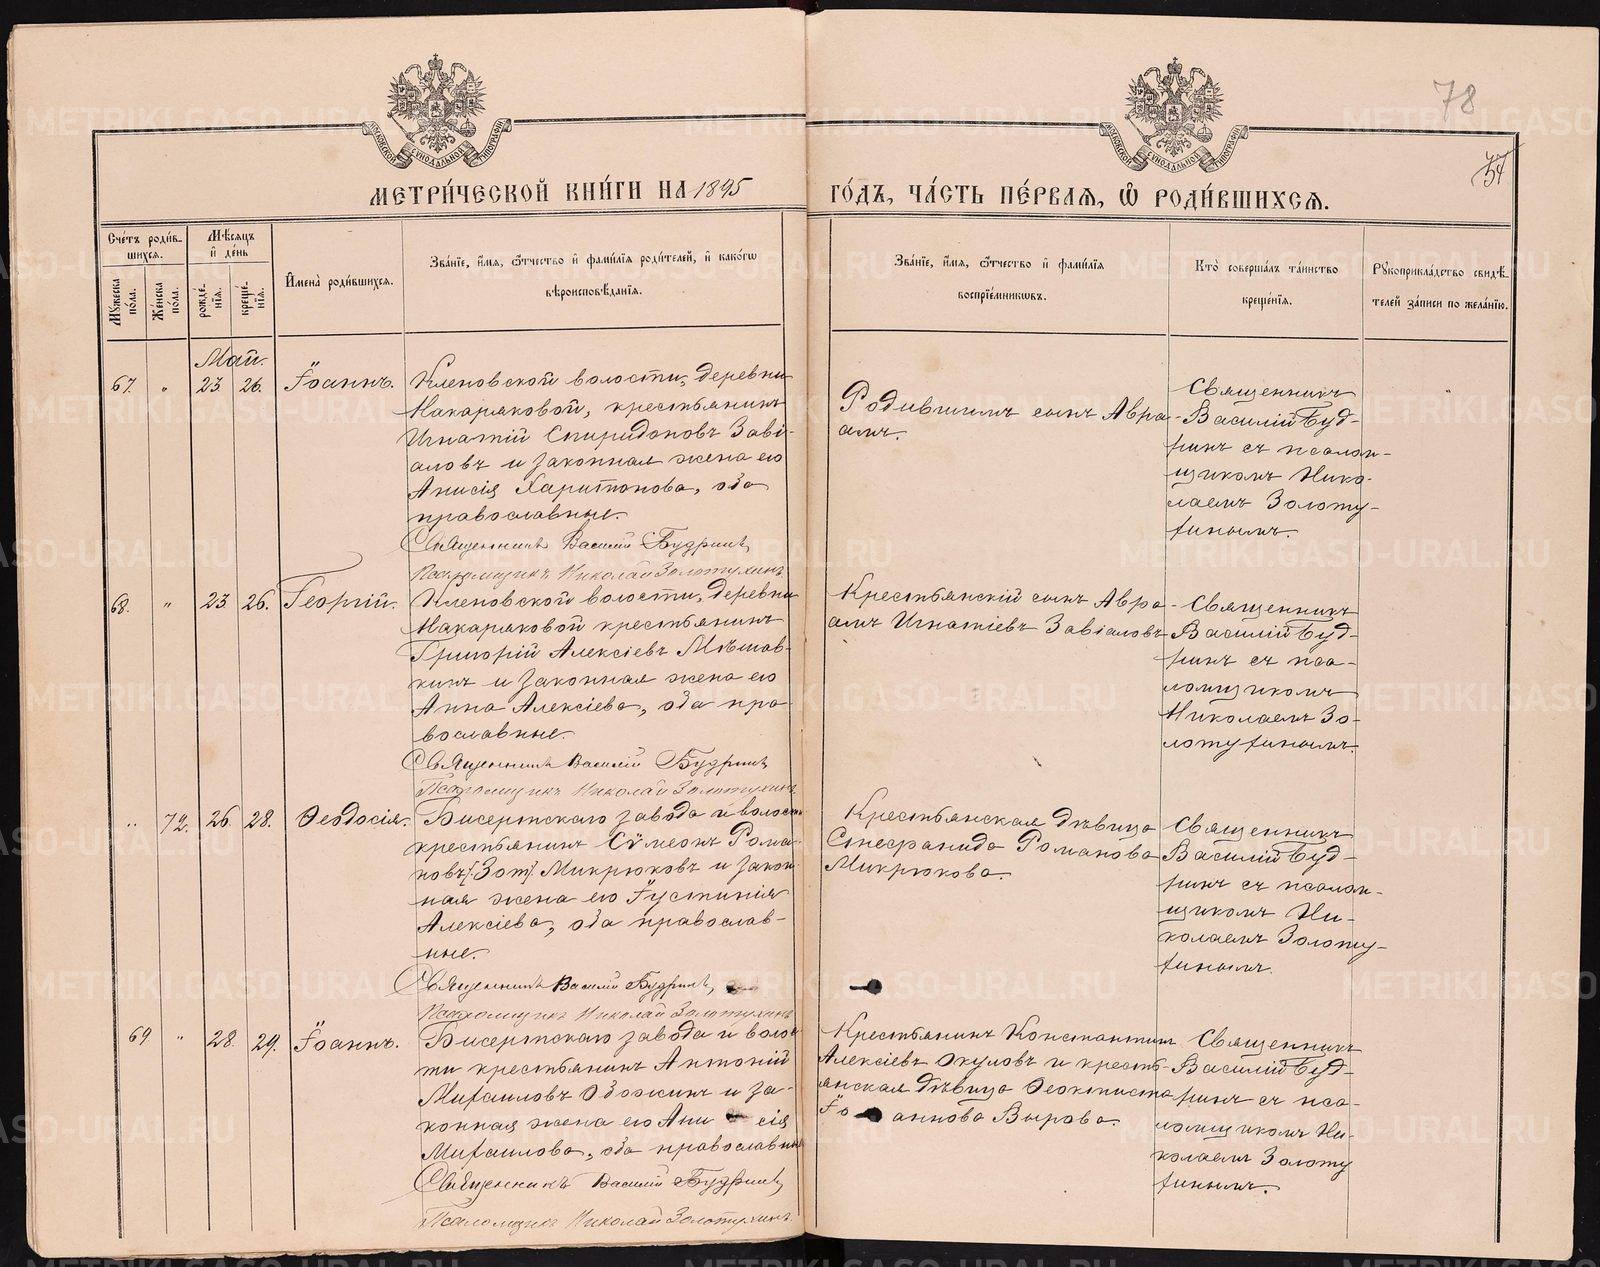 78
54
МОСКОВСКОЙ СѴНОДАЛЬНОЙ ТИПОГРАФІИ
МОСКОВСКОЙ СѴНОДАЛЬНОЙ ТИПОГРАФІИ
МЕТРИ́ЧЕСКОЙ КНИ́ГИ НА 1895
ГО́ДЪ, ЧА́СТЬ ПЕ́РВАѦ, Ѡ҆ РОДИ́ВШИХСѦ.
Сче́тъ роди́в-
шихсѧ.
Мꙋ́жеска по́ла.
Же́нска по́ла.
Мѣ́сѧцъ и҆ де́нь
рожде́-нїѧ.
креще́-нїѧ.
И҆мена̀ роди́вшихсѧ.
Зва́нїе, и҆́мѧ, ѻ҆́тчество и҆ фами́лїѧ роди́телей, и҆ како́гѡ
вѣроисповѣ́данїѧ.
Зва́нїе, и҆́мѧ, ѻ҆́тчество и҆ фами́лїѧ
воспрїе́мникѡвъ.
Кто̀ соверша́лъ та́инство
креще́нїѧ.
Рꙋкоприкла́дство свидѣ́-
телей за́писи по жела́нїю.
Май.
67. " 23 26. Іоаннъ.
Кленовской волости, деревни
Макаряковой, крестьянинъ
Игнатій Спиридоновъ Заві-
аловъ и законная жена его
Анисія Харитонова, оба
православные.
Священникъ Василій Будринъ,
Псаломщикъ Николай Золотухинъ.
Родившимъ сынъ Авра-
амъ.
Священникъ
Василій Буд-
ринъ съ псалом-
щикомъ Нико-
лаемъ Золоту-
хинымъ.
68. " 23 26. Георгій.
Кленовской волости, деревни
Макаряковой крестьянинъ
Григорій Алексіевъ Мѣшав-
кинъ и законная жена его
Анна Алексіева, оба пра-
вославные.
Священникъ Василій Будринъ,
Псаломщикъ Николай Золотухинъ.
Крестьянскій сынъ Авра-
амъ Игнатіевъ Завіаловъ
Священникъ
Василій Буд-
ринъ съ пса-
ломщикомъ
Николаемъ Зо-
лотухинымъ.
" 72. 26. 28. Ѳеодосія.
Бисертскаго завода и волости
крестьянинъ Сѵмеонъ Рома-
новъ [Зот] Микрюковъ и закон-
ная жена его Іустинія
Алексіева, оба православ-
ные.
Священникъ Василій Будринъ,
Псаломщикъ Николай Золотухинъ
Крестьянская дѣвица
Стефанида Романова
Микрюкова.
Священникъ
Василій Буд-
ринъ съ псалом-
щикомъ Ни-
колаемъ Золоту-
хинымъ.
69 " 28. 29. Іоаннъ.
Бисертскаго завода и волос-
ти крестьянинъ Антоній
Михаиловъ Обожинъ и за-
конная жена его Ани сія
Михаилова, оба православные
Священникъ Василій Будринъ,
Псаломщикъ Николай Золотухинъ.
Крестьянинъ Константинъ
Алексіевъ Окуловъ и кресть-
янская дѣвица Ѳеоктиста
Іо аннова Вырова.
Священникъ
Василій Буд-
ринъ съ пса-
ломщикомъ Ни-
колаемъ Золоту
хинымъ.
METRIKI.GASO-URAL.RU